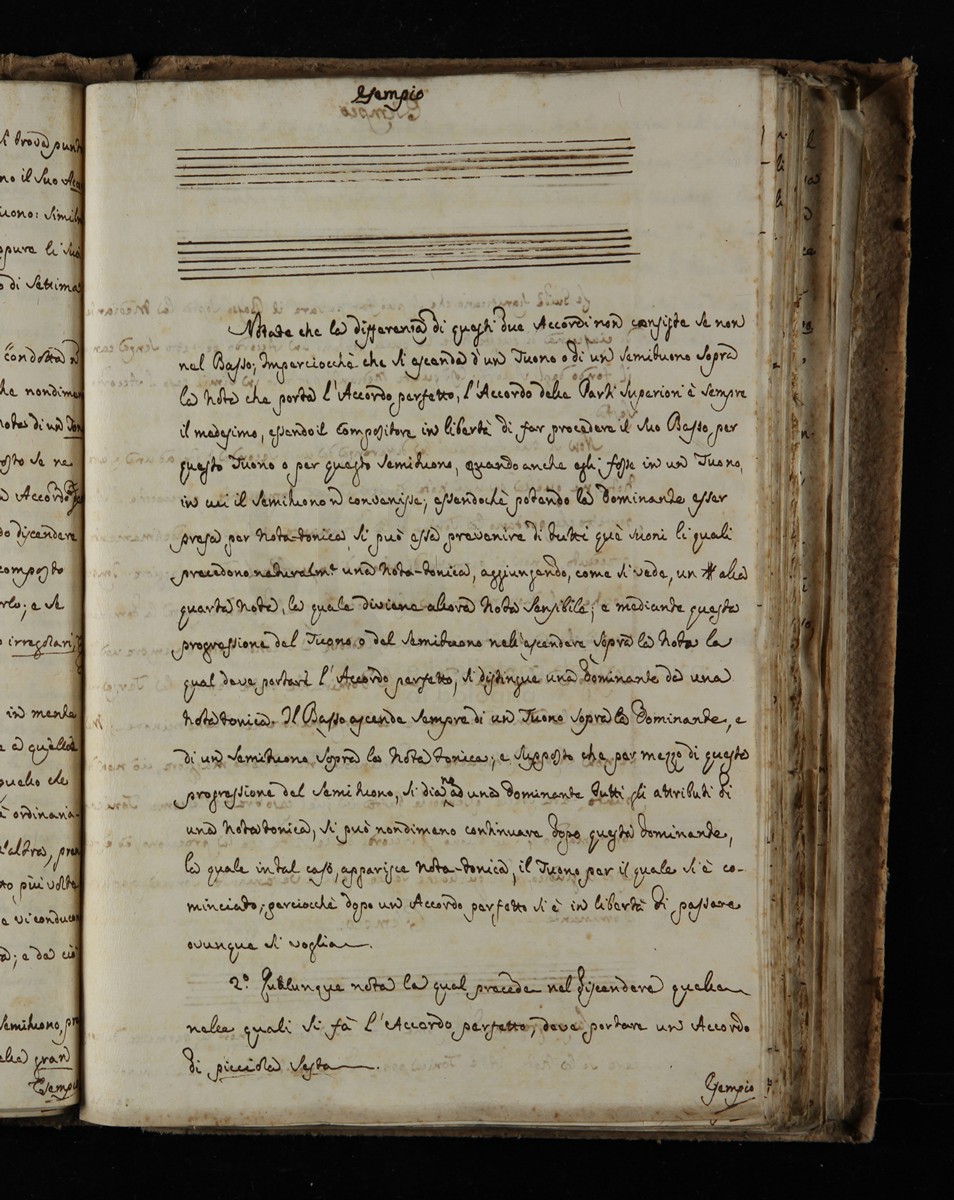 Esempio
Notate che la differenza di questi due Accordi non consiste se non
nel Basso; Imperciocchè che si ascenda d'un Tuono o di un semituono sopra
la Nota che porta l'Accordo perfetto, l'Accordo delle Parti superiori è sempre
il medesimo, essendo il Compositore in libertà di far procedere il suo Basso per
questo Tuono o per questo semituono, quando anche egli fosse in un Tuono,
in cui il semituono ñ convenisse; essendochè potendo la dominante esser
presa per Nota-tonica, si può essa prevenire di tutti què suoni li quali
precedono naturalmte una Nota-tonica, aggiungendo, come si vede, un # alla
quarta Nota, la quale diviene allora Nota sensibile; e mediante questa
progressione del Tuono o del semituono nell'ascendere sopra la Nota la
qual deve portare l'Accordo perfetto, si distingue una Dominante da una
Nota tonica. Il Basso ascende sempre di un Tuono sopra la Dominante, e
di un semituono sopra la Nota tonica; e supposto che per mezzo di questa
progressione del semituono, si diano ad una dominante tutti gli attributi di
una Nota tonica, si può nondimeno continuare dopo questa dominante,
la quale in tal caso, apparisce Nota-tonica, il Tuono per il quale si è co-
minciato; perciocchè dopo un Accordo perfetto si è in libertà di passare
ovunque si voglia.
2.° Qualunque nota la qual precede nel discendere quelle
nelle quali si fà l'Accordo perfetto, deve portare un Accordo
di picciola sesta.
Esempio
si trova
no il suo
uono:
oppure li suoi
o di settima
condotta ñ
nota di un
osto se ne
ñ Accordo
do discendere
composto
rlo; e se
irregolari
in mente
e à quelle
quello che
ordinaria-
l'altra,
più volte
e vi
a; e da ciò
semituono,
gran
Esempio